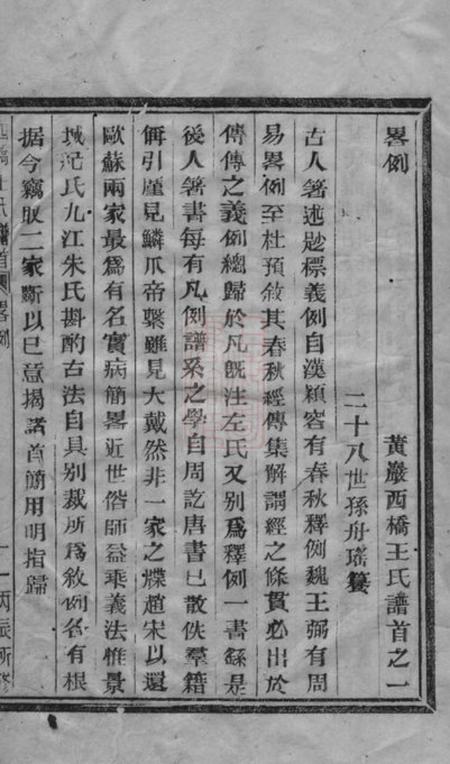 畧例
黃巖西橋王氏譜首之一
二十八世孫舟瑤纂
古人箸述尟標義例自漢穎容有春秋釋例魏王弼有周
易畧例至杜預敘其春秋經傳集解謂經之條貫必出於
傳傳之義例總歸於凡既注左氏又別爲釋例一書繇是
後人箸書每有凡例譜系之學自周訖唐書已散佚羣籍
偁引廑見鱗爪帝繫雖見大戴然非一家之牒趙宋以還
歐蘇兩家最爲有名實病簡畧近世俗師益乖義法惟景
城紀氏九江朱氏斟酌古法自具別裁所爲敘例各有根
据今竊取二家斷以己意揭諸首簡用明指歸
西橋王氏譜首 畧例 一 丙辰所修